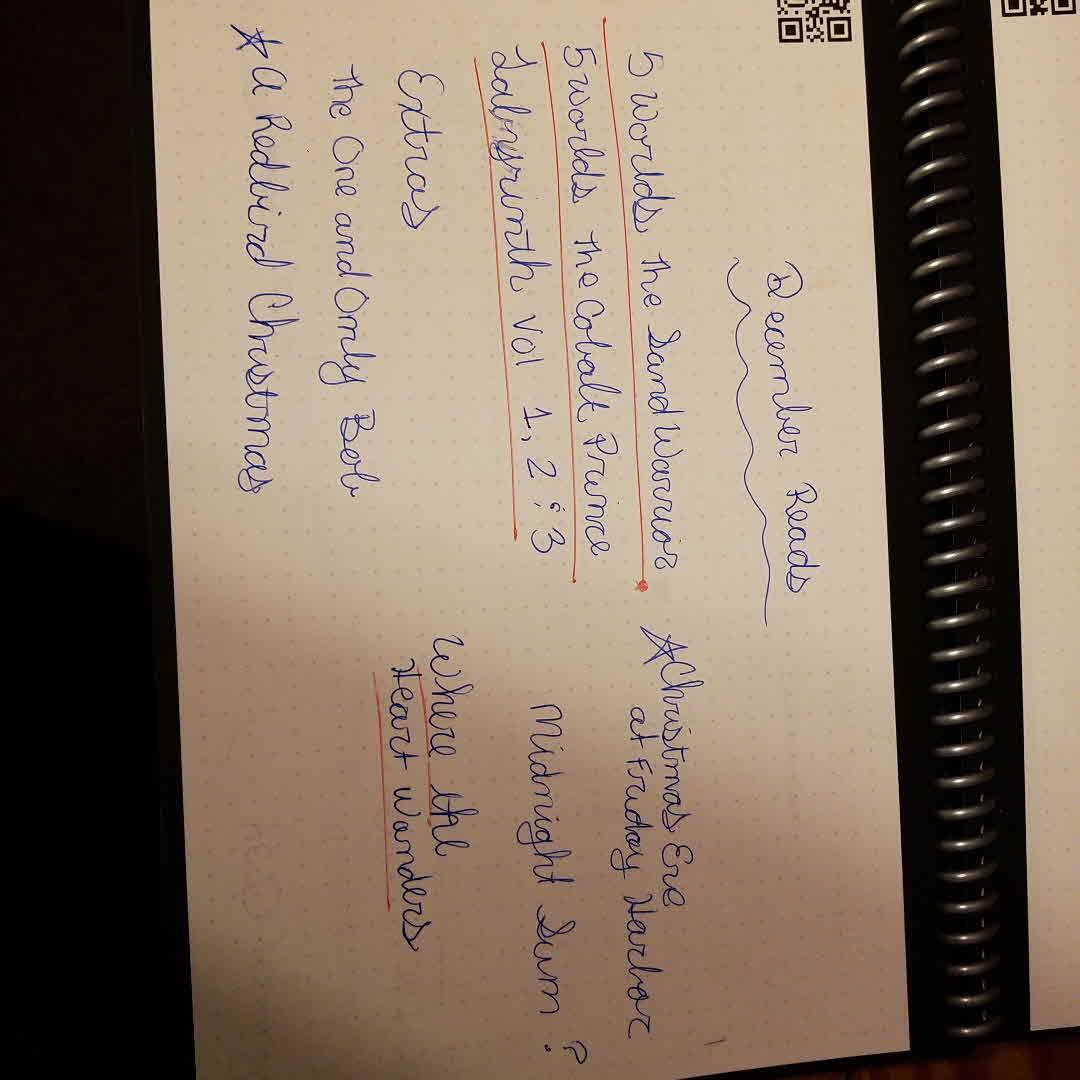 December Reads
5 Worlds the Sand Warrior
5 worlds the Cobalt Prince
Labnyrinth Vol 1, 2 & 3
Extras
The One and Only Bob
☆ A Redbird Christmas
☆ Christmas Eve
at Friday Harbor
Midnight Sun ?
Where the
Heart Wanders